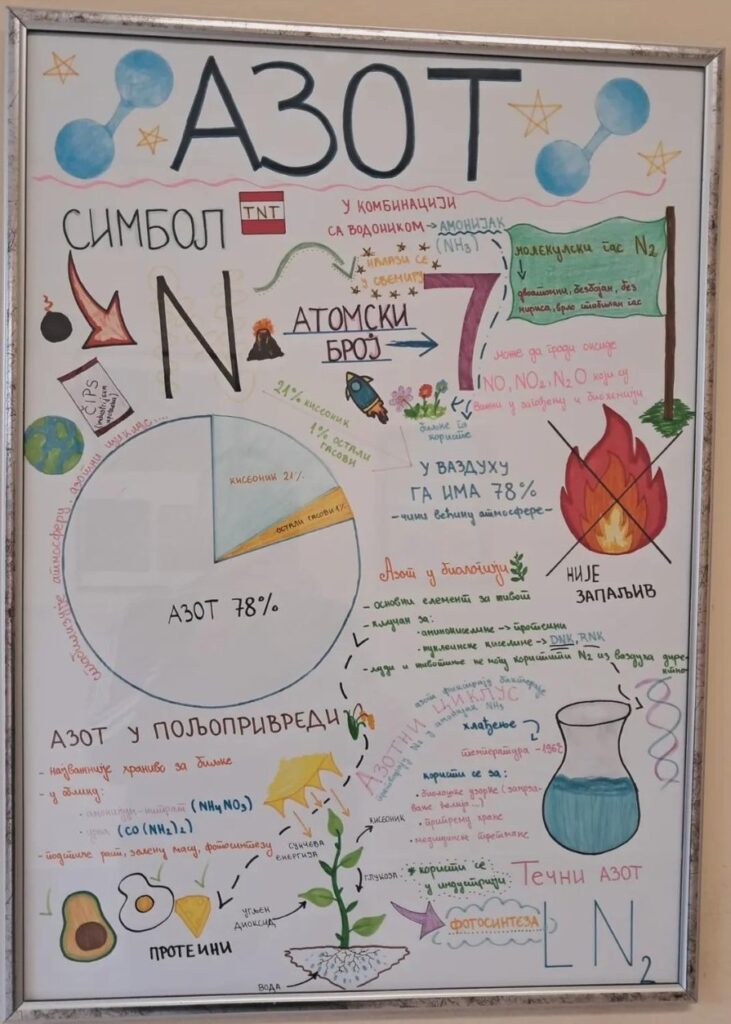 АЗОТ
СИМБОЛ
TNT
N
У КОМБИНАЦИЈИ
СА ВОДОНИКОМ → АМОНИЈАК
(NH₃)
НАЛАЗИ СЕ
У СВЕМИРУ
АТОМСКИ
БРОЈ
7
молекулски гас N₂
двоатомни, безбојан, без
мириса, врло стабилан гас
може да гради оксиде
NO, NO₂, N₂O који су
важни у
биљке га
користе
ČIPS
21% кисеоник
1% остали
гасови
КИСЕОНИК 21%
ОСТАЛИ ГАСОВИ 1%
АЗОТ 78%
атмосферу, азотни циклус...
У ВАЗДУХУ
ГА ИМА 78%
-чини већину атмосфере-
НИЈЕ
ЗАПАЉИВ
Азот у биологији
- основни елемент за живот
- кључан за:
· аминокиселине → протеини
· нуклеинске киселине → DNK, RNK
- људи и животиње не могу користити N₂ из ваздуха директно
АЗОТ У ПОЉОПРИВРЕДИ
- најважније храниво за биљке
- у облику:
· амонијум-нитрат (NH₄NO₃)
· уреа (CO(NH₂)₂)
- подстиче раст, зелену масу, фотосинтезу
АЗОТНИ ЦИКЛУС
азот фиксирају бактерије
NH₃
хлађење
температура -196°
користи се за:
· биолошке узорке
· припрему хране
· медицинске третмане
* користи се
у индустрији
Течни АЗОТ
LN₂
СУНЧЕВА
ЕНЕРГИЈА
КИСЕОНИК
ГЛУКОЗА
УГЉЕН
ДИОКСИД
ВОДА
ФОТОСИНТЕЗА
ПРОТЕИНИ